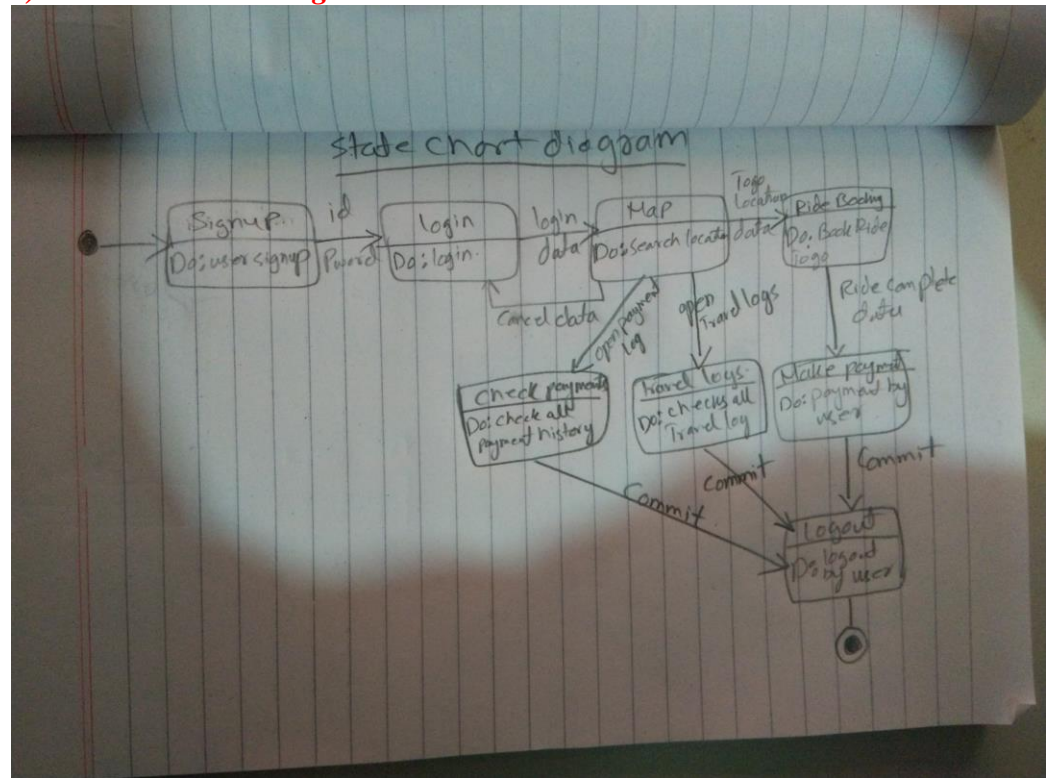 State chart diagram
Signup..
Do: user signup
id
login
Do: login.
login
data
Map
Do: Search locatn
Togo
Location
data
Ride Booking
Do: Book Ride
Togo
Cancel data
open payment
log
open
Travel logs
Ride Complete
data
Check payments
Do: check all
payment history
Travel logs.
Do: checks all
Travel log
Make payment
Do: payment by
user
Commit
Commit
Commit
Logout
Do: logout
by user